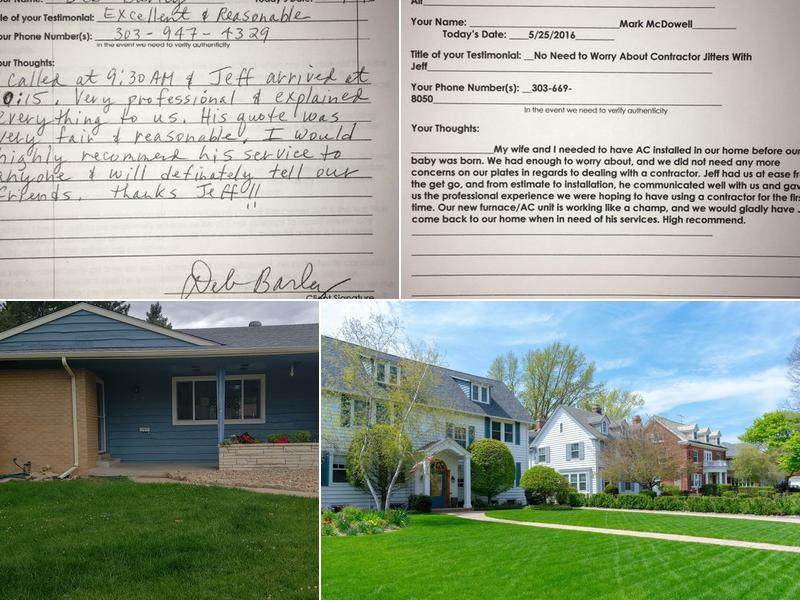 Title of your Testimonial: Excellent & Reasonable
Your Phone Number(s): 303-947-4329
In the event we need to verify authenticity
Your Thoughts:
I called at 9:30 AM & Jeff arrived at
10:15. Very professional & explained
everything to us. His quote was
very fair & reasonable. I would
highly recommend his service to
anyone & will definately tell our
friends. Thanks Jeff!!
Deb Barley
Client Signature
All
Your Name: Mark McDowell
Today's Date: 5/25/2016
Title of your Testimonial: No Need to Worry About Contractor Jitters With
Jeff
Your Phone Number(s): 303-669-
8050
In the event we need to verify authenticity
Your Thoughts:
My wife and I needed to have AC installed in our home before our
baby was born. We had enough to worry about, and we did not need any more
concerns on our plates in regards to dealing with a contractor. Jeff had us at ease fr
the get go, and from estimate to installation, he communicated well with us and gav
us the professional experience we were hoping to have using a contractor for the firs
time. Our new furnace/AC unit is working like a champ, and we would gladly have
come back to our home when in need of his services. High recommend.